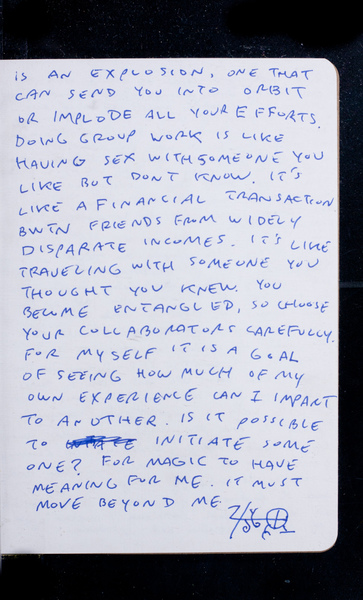 IS AN EXPLOSION, ONE THAT
CAN SEND YOU INTO ORBIT
OR IMPLODE ALL YOUR EFFORTS.
DOING GROUP WORK IS LIKE
HAVING SEX WITH SOMEONE YOU
LIKE BUT DON'T KNOW. IT'S
LIKE A FINANCIAL TRANSACTION
BWTN FRIENDS FROM WIDELY
DISPARATE INCOMES. IT'S LIKE
TRAVELING WITH SOMEONE YOU
THOUGHT YOU KNEW. YOU
BECOME ENTANGLED, SO CHOOSE
YOUR COLLABORATORS CAREFULLY.
FOR MYSELF IT IS A GOAL
OF SEEING HOW MUCH OF MY
OWN EXPERIENCE CAN I IMPART
TO ANOTHER. IS IT POSSIBLE
TO INITIATE SOME
ONE? FOR MAGIC TO HAVE
MEANING FOR ME. IT MUST
MOVE BEYOND ME